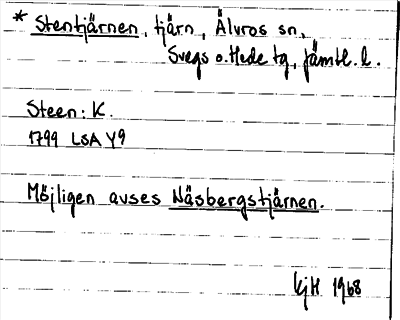 * Stentjärnen, tjärn, Älvros sn,
Svegs o. Hede tg, Jämtl. l.
Steen: K.
1799 LSA Y9
Möjligen avses Näsbergstjärnen.
KjH 1968